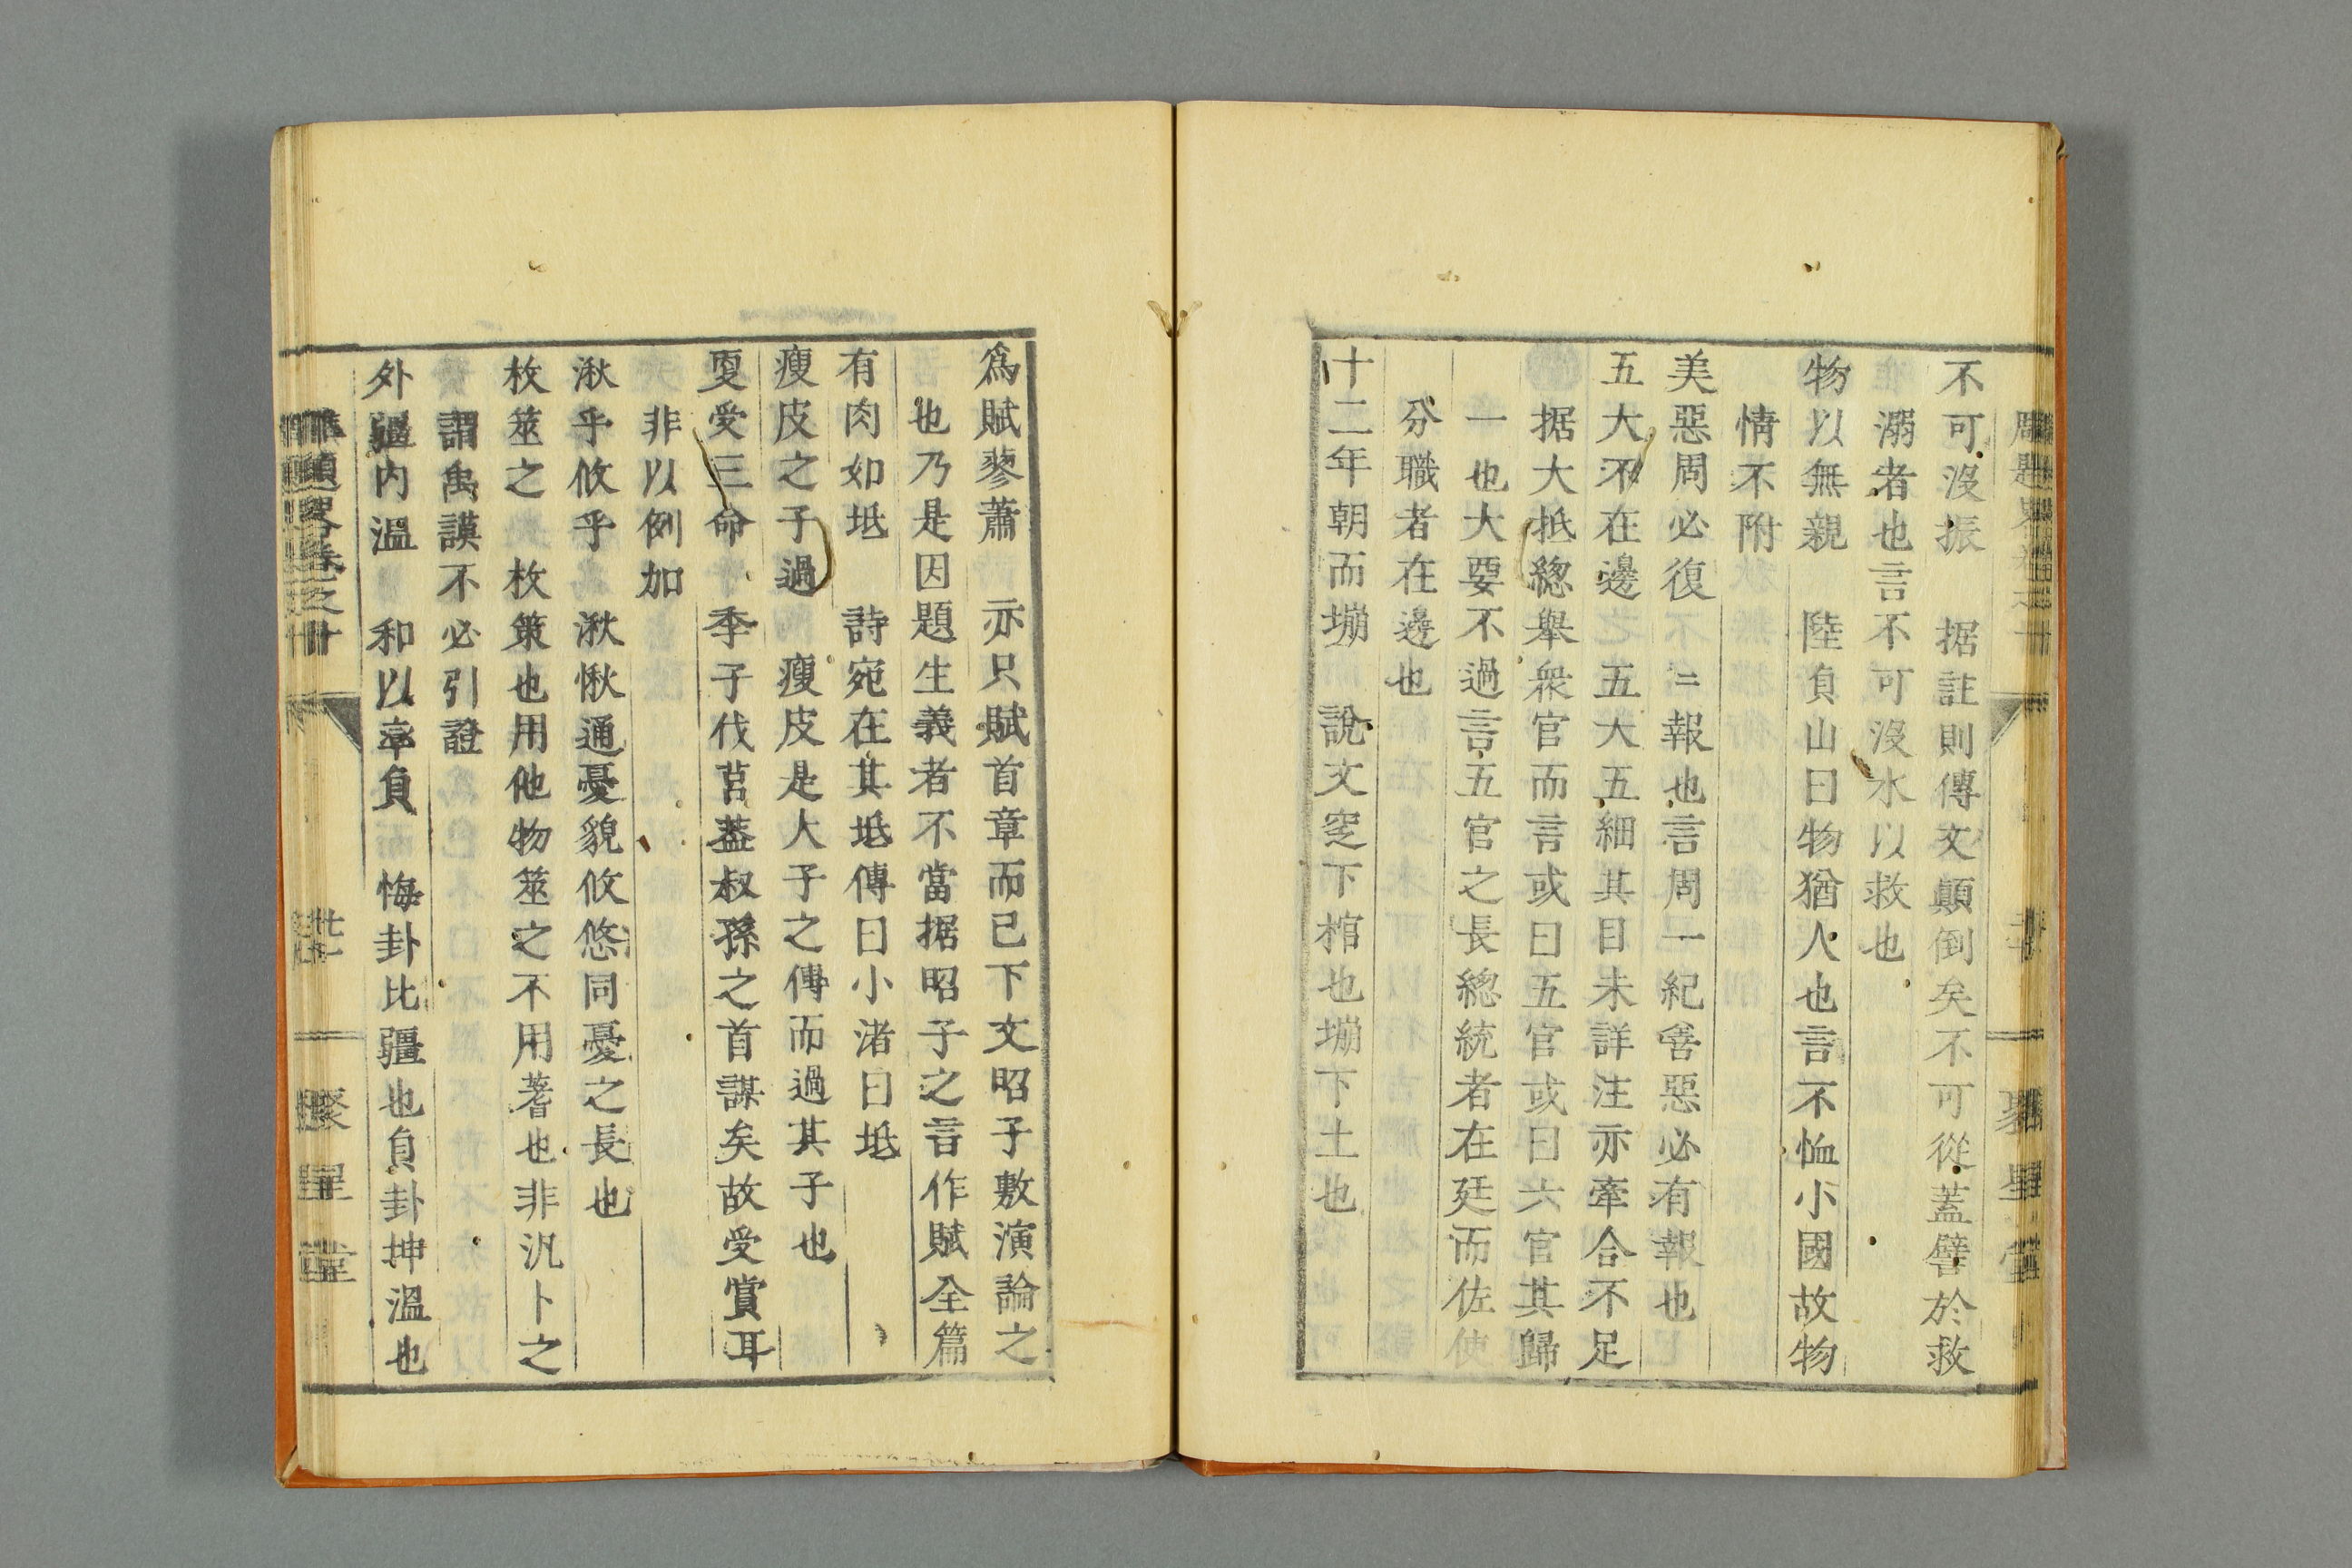 不可沒振　据註則傳文顚倒矣不可從蓋譬於救
溺者也言不可沒水以救也
物以無親　陸負山曰物猶人也言不恤小國故物
情不附
美惡周必復　二報也言周一紀善惡必有報也
五大不在邊　五大五細其目未詳注亦牽合不足
据大抵總舉衆官而言或曰五官或曰六官其歸
一也大要不過言五官之長總統者在廷而佐使
分職者在邊也
十二年朝而塴　說文窆下棺也塴下土也
爲賦蓼蕭　亦只賦首章而已下文昭子敷演論之
也乃是因題生義者不當据昭子之言作賦全篇
有肉如坻　詩宛在其坻傳曰小渚曰坻
瘦皮之子過　瘦皮是人子之傳而過其子也
叓受三命　季子伐莒葢叔孫之首謀矣故受賞耳
非以例加
湫乎攸乎　湫愀通憂貌攸悠同憂之長也
枚筮之　枚策也用他物筮之不用蓍也非汎卜之
謂禹謨不必引證
外疆內溫　和以率負　悔卦比疆也負卦坤溫也
聚星堂